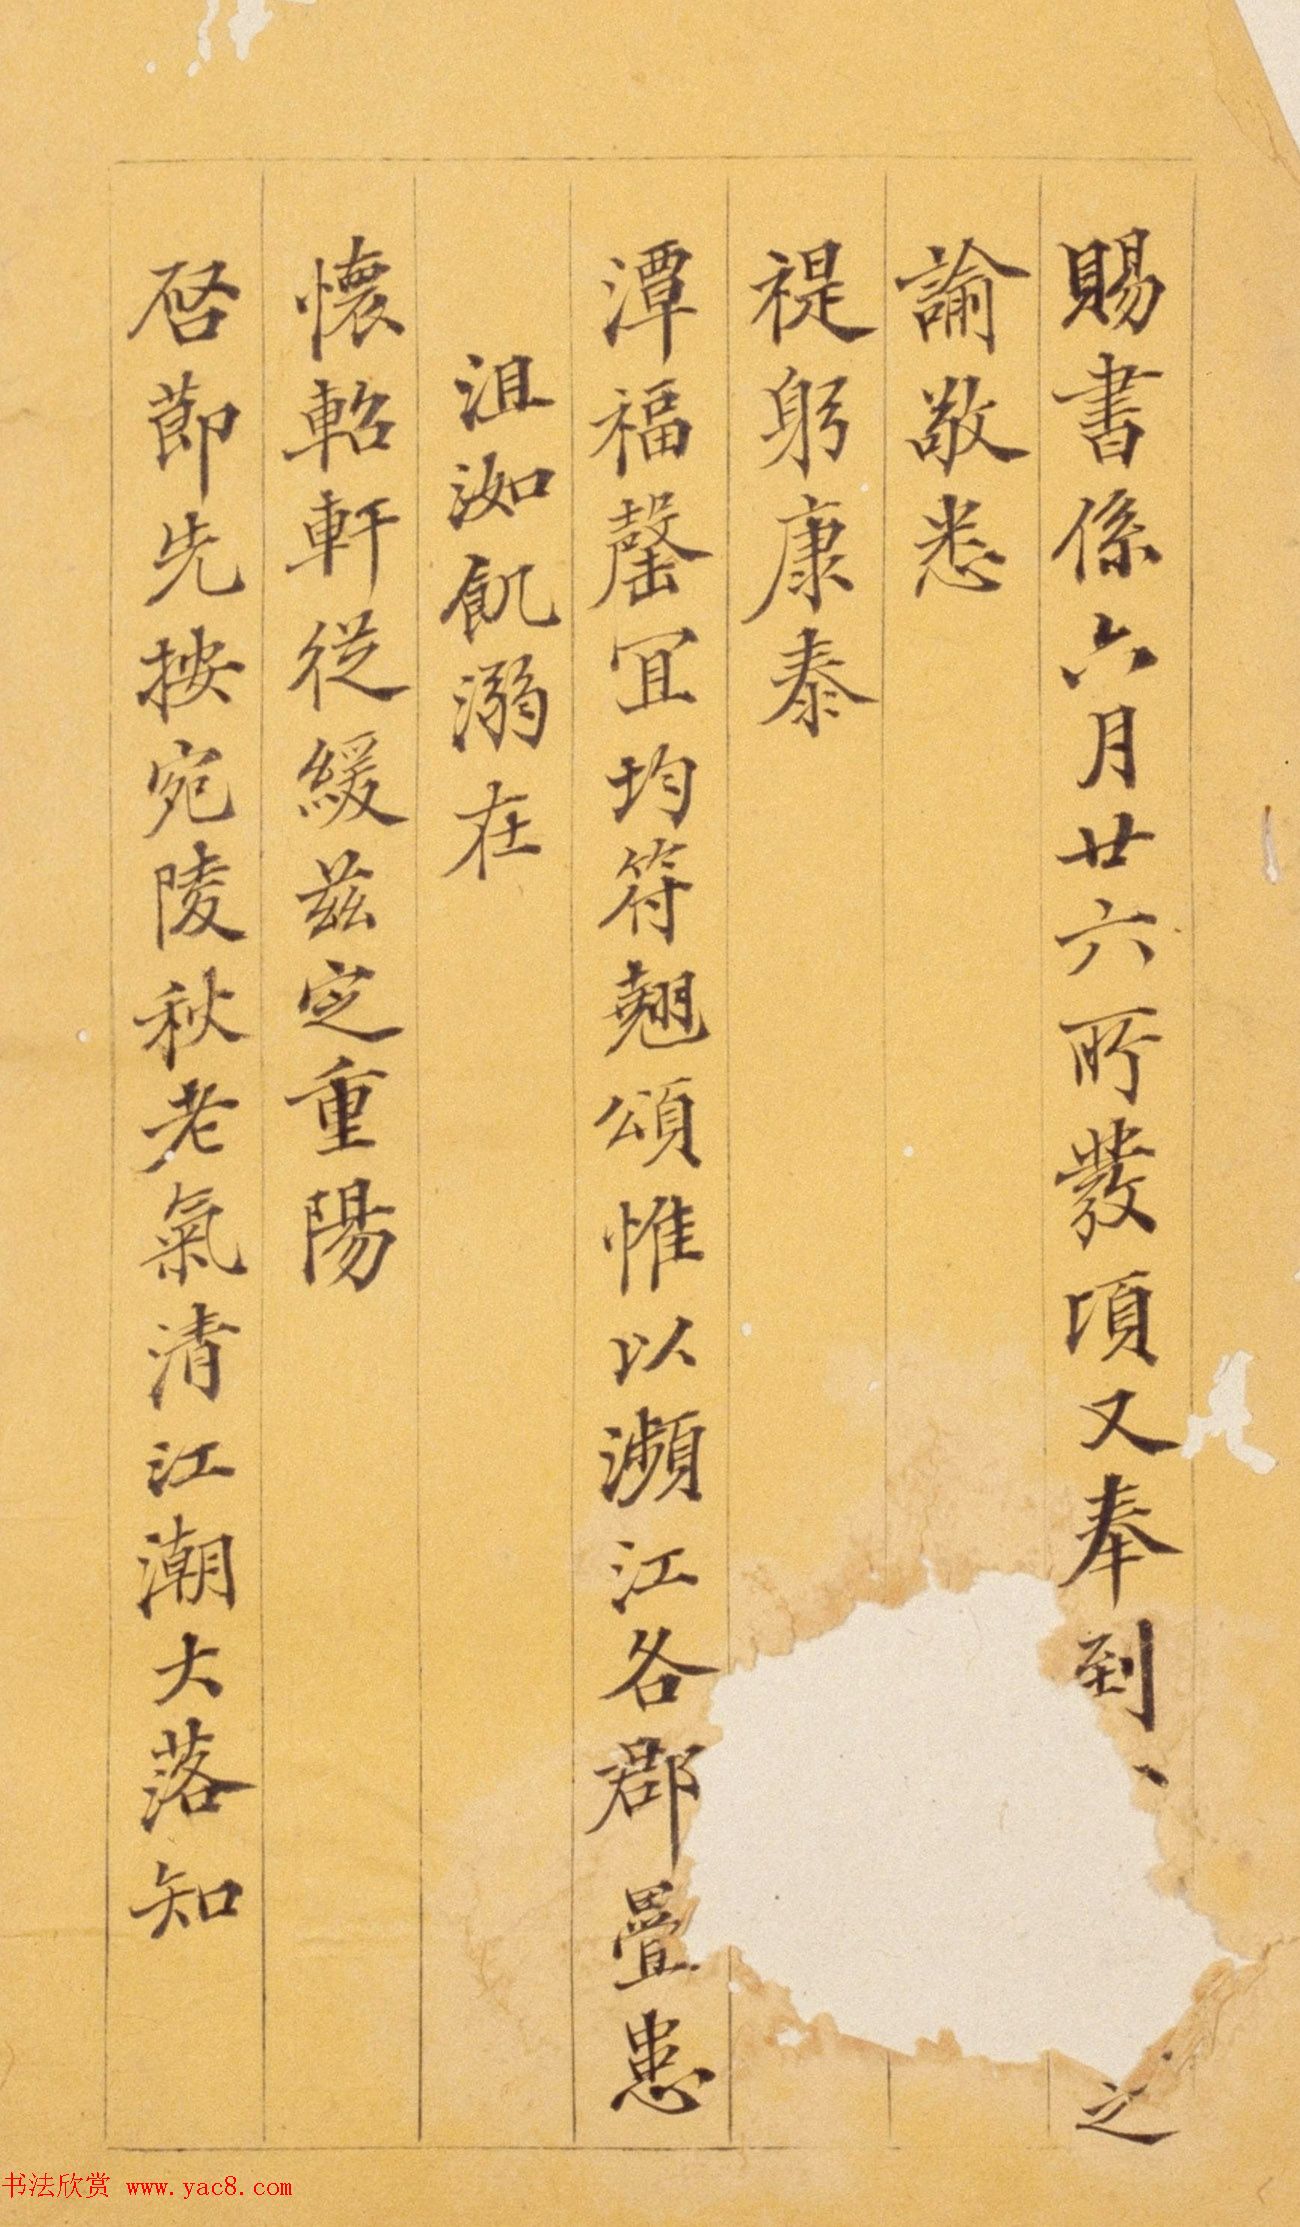 賜書係六月廿六所發頃又奉到之
諭敬悉
禔躬康泰
潭福罄宜均符翹頌惟以瀕江各郡疊患
沮洳飢溺在
懷軺軒從緩茲定重陽
啓節先按宛陵秋老氣清江潮大落知
书法欣赏 www.yac8.com